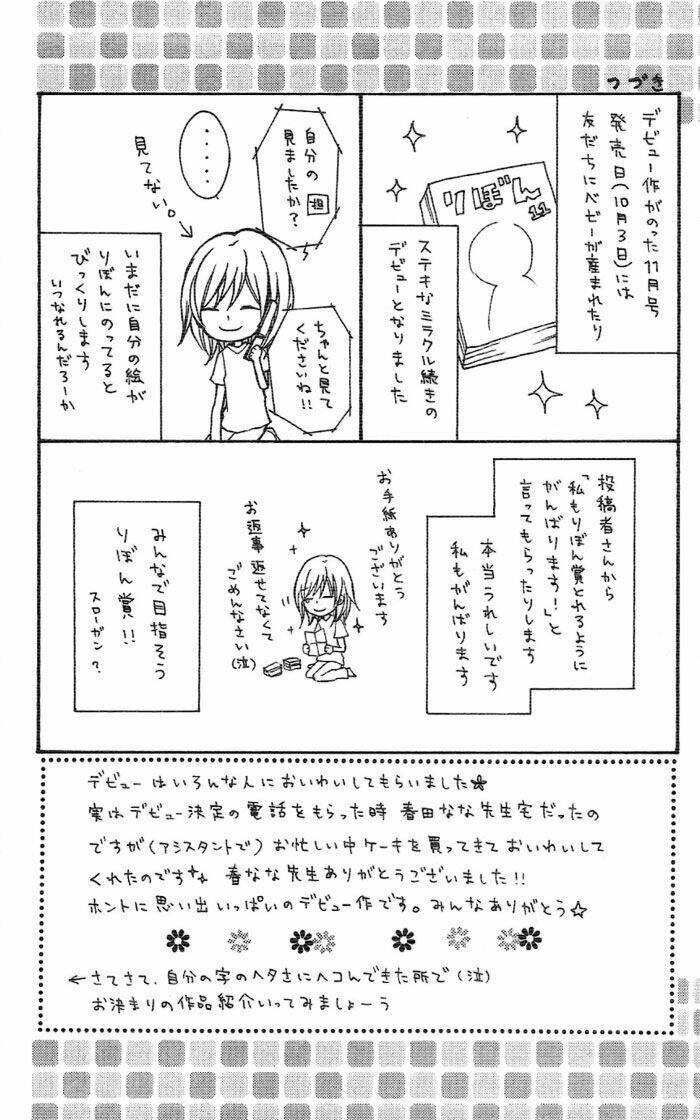 つづき
デビュー作がのった11月号
発売日(10月3日)には
友だちにベビーが産まれたり
りぼん
11
ステキなミラクル続きの
デビューとなりました
自分の
見ましたか?
担
・・・・
見てない。
ちゃんと見て
くださいね!!
いまだに自分の絵が
りぼんにのってると
びっくりします
いつなれるんだろーか
投稿者さんから
「私もりぼん賞とれるように
がんばります!」と
言ってもらったりします
本当うれしいです
私もがんばります
お手紙ありがとう
ございます
お返事返せてなくて
ごめんなさい(泣)
みんなで目指そう
りぼん賞!!
スローガン?
デビューはいろんな人においわいしてもらいました★
実はデビュー決定の電話をもらった時 春田なな先生宅だったの
ですが(アシスタントで) お忙しい中ケーキを買ってきておいわいして
くれたのです 春なな先生ありがとうございました!!
ホントに思い出いっぱいのデビュー作です。みんなありがとう☆
←さてさて、自分の字のヘタさにヘコんできた所で(泣)
お決まりの作品紹介いってみましょーう